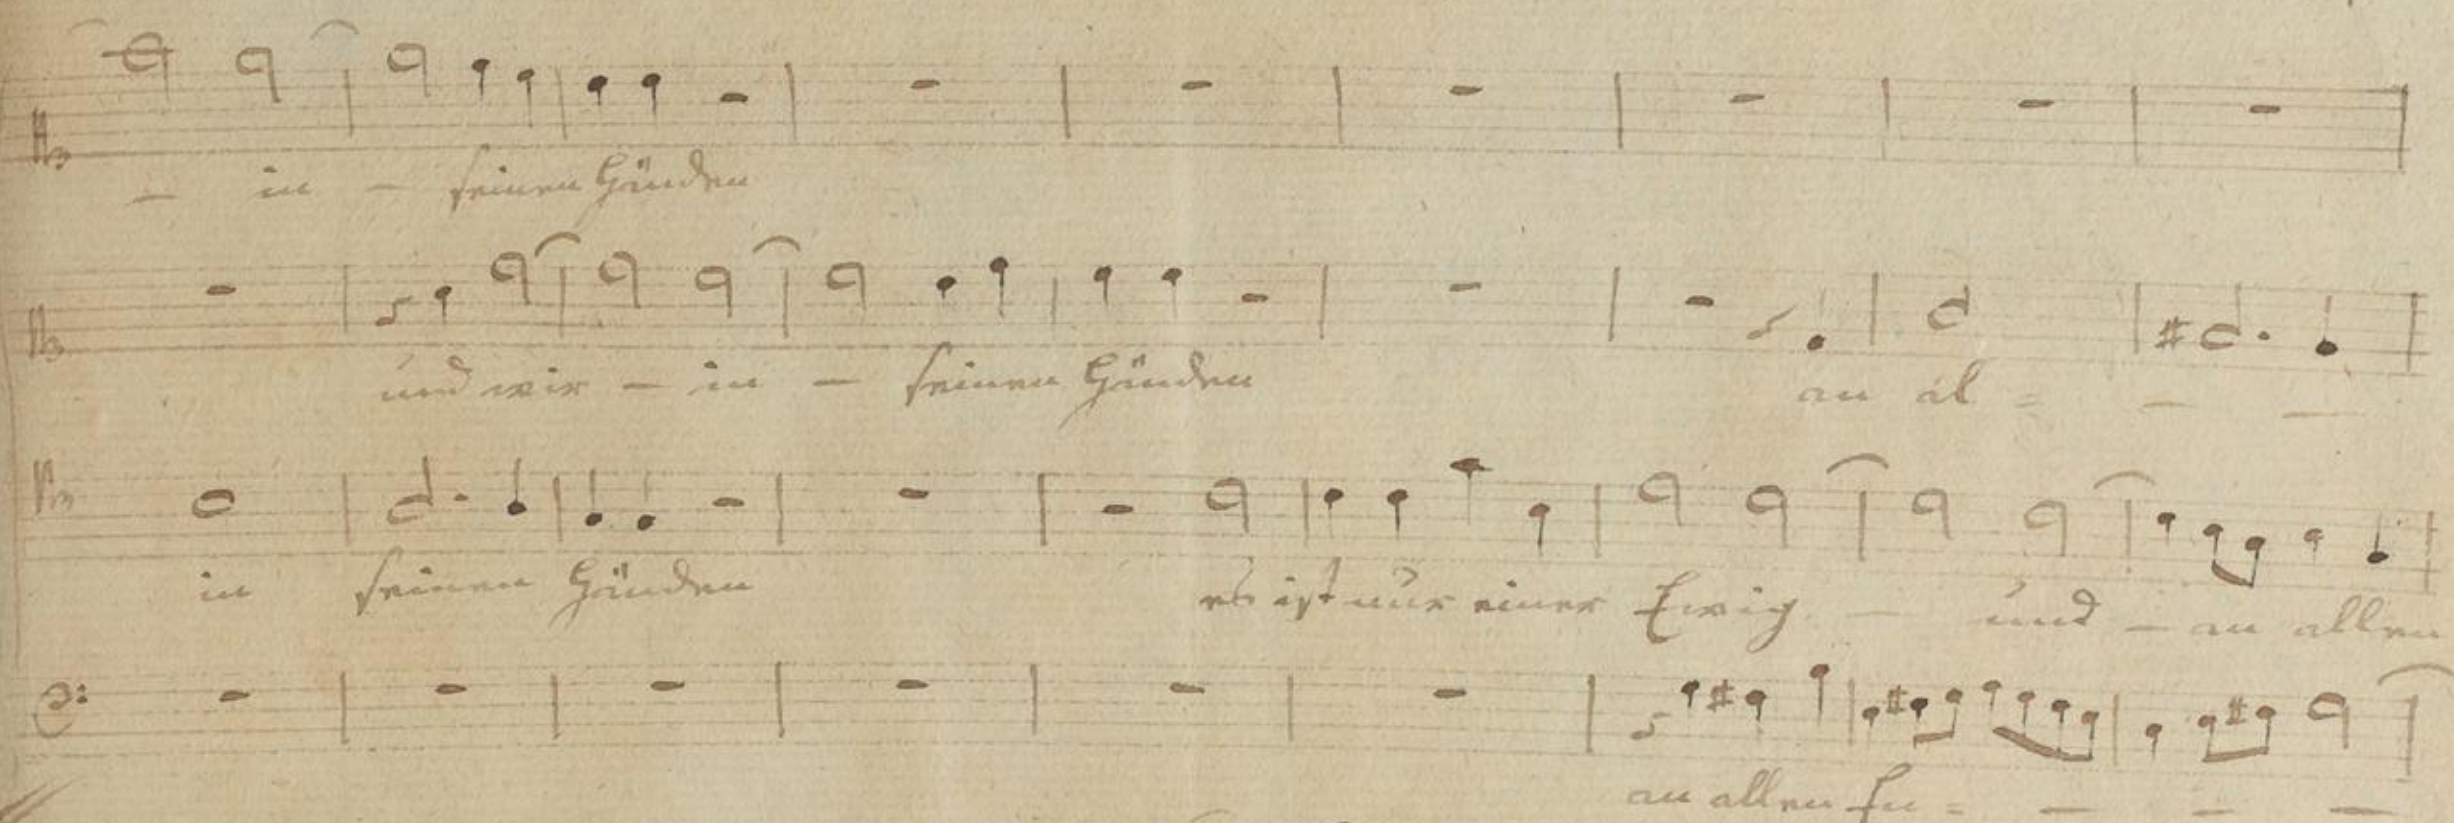 – in – seinen Händen
und wir – in – seinen Händen an al = – –
in seinen Händen es ist nur einer Ewig – und – an allen
an allen En = – – –